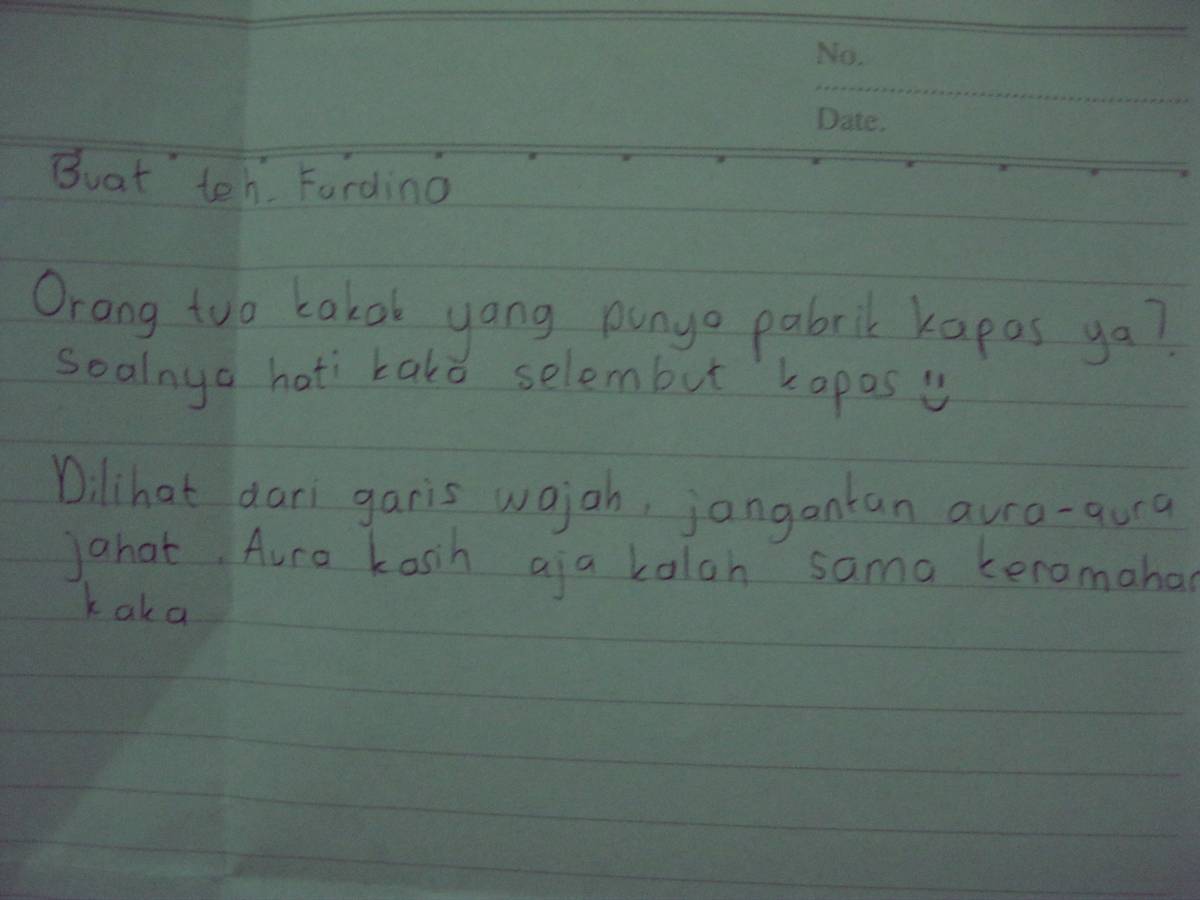 No.
Date.
Buat teh. Fardina
Orang tua kakak yang punya pabrik kapas ya?
Soalnya hati kaka selembut kapas
Dilihat dari garis wajah, jangankan aura-aura
jahat. Aura kasih aja kalah sama keramahan
kaka